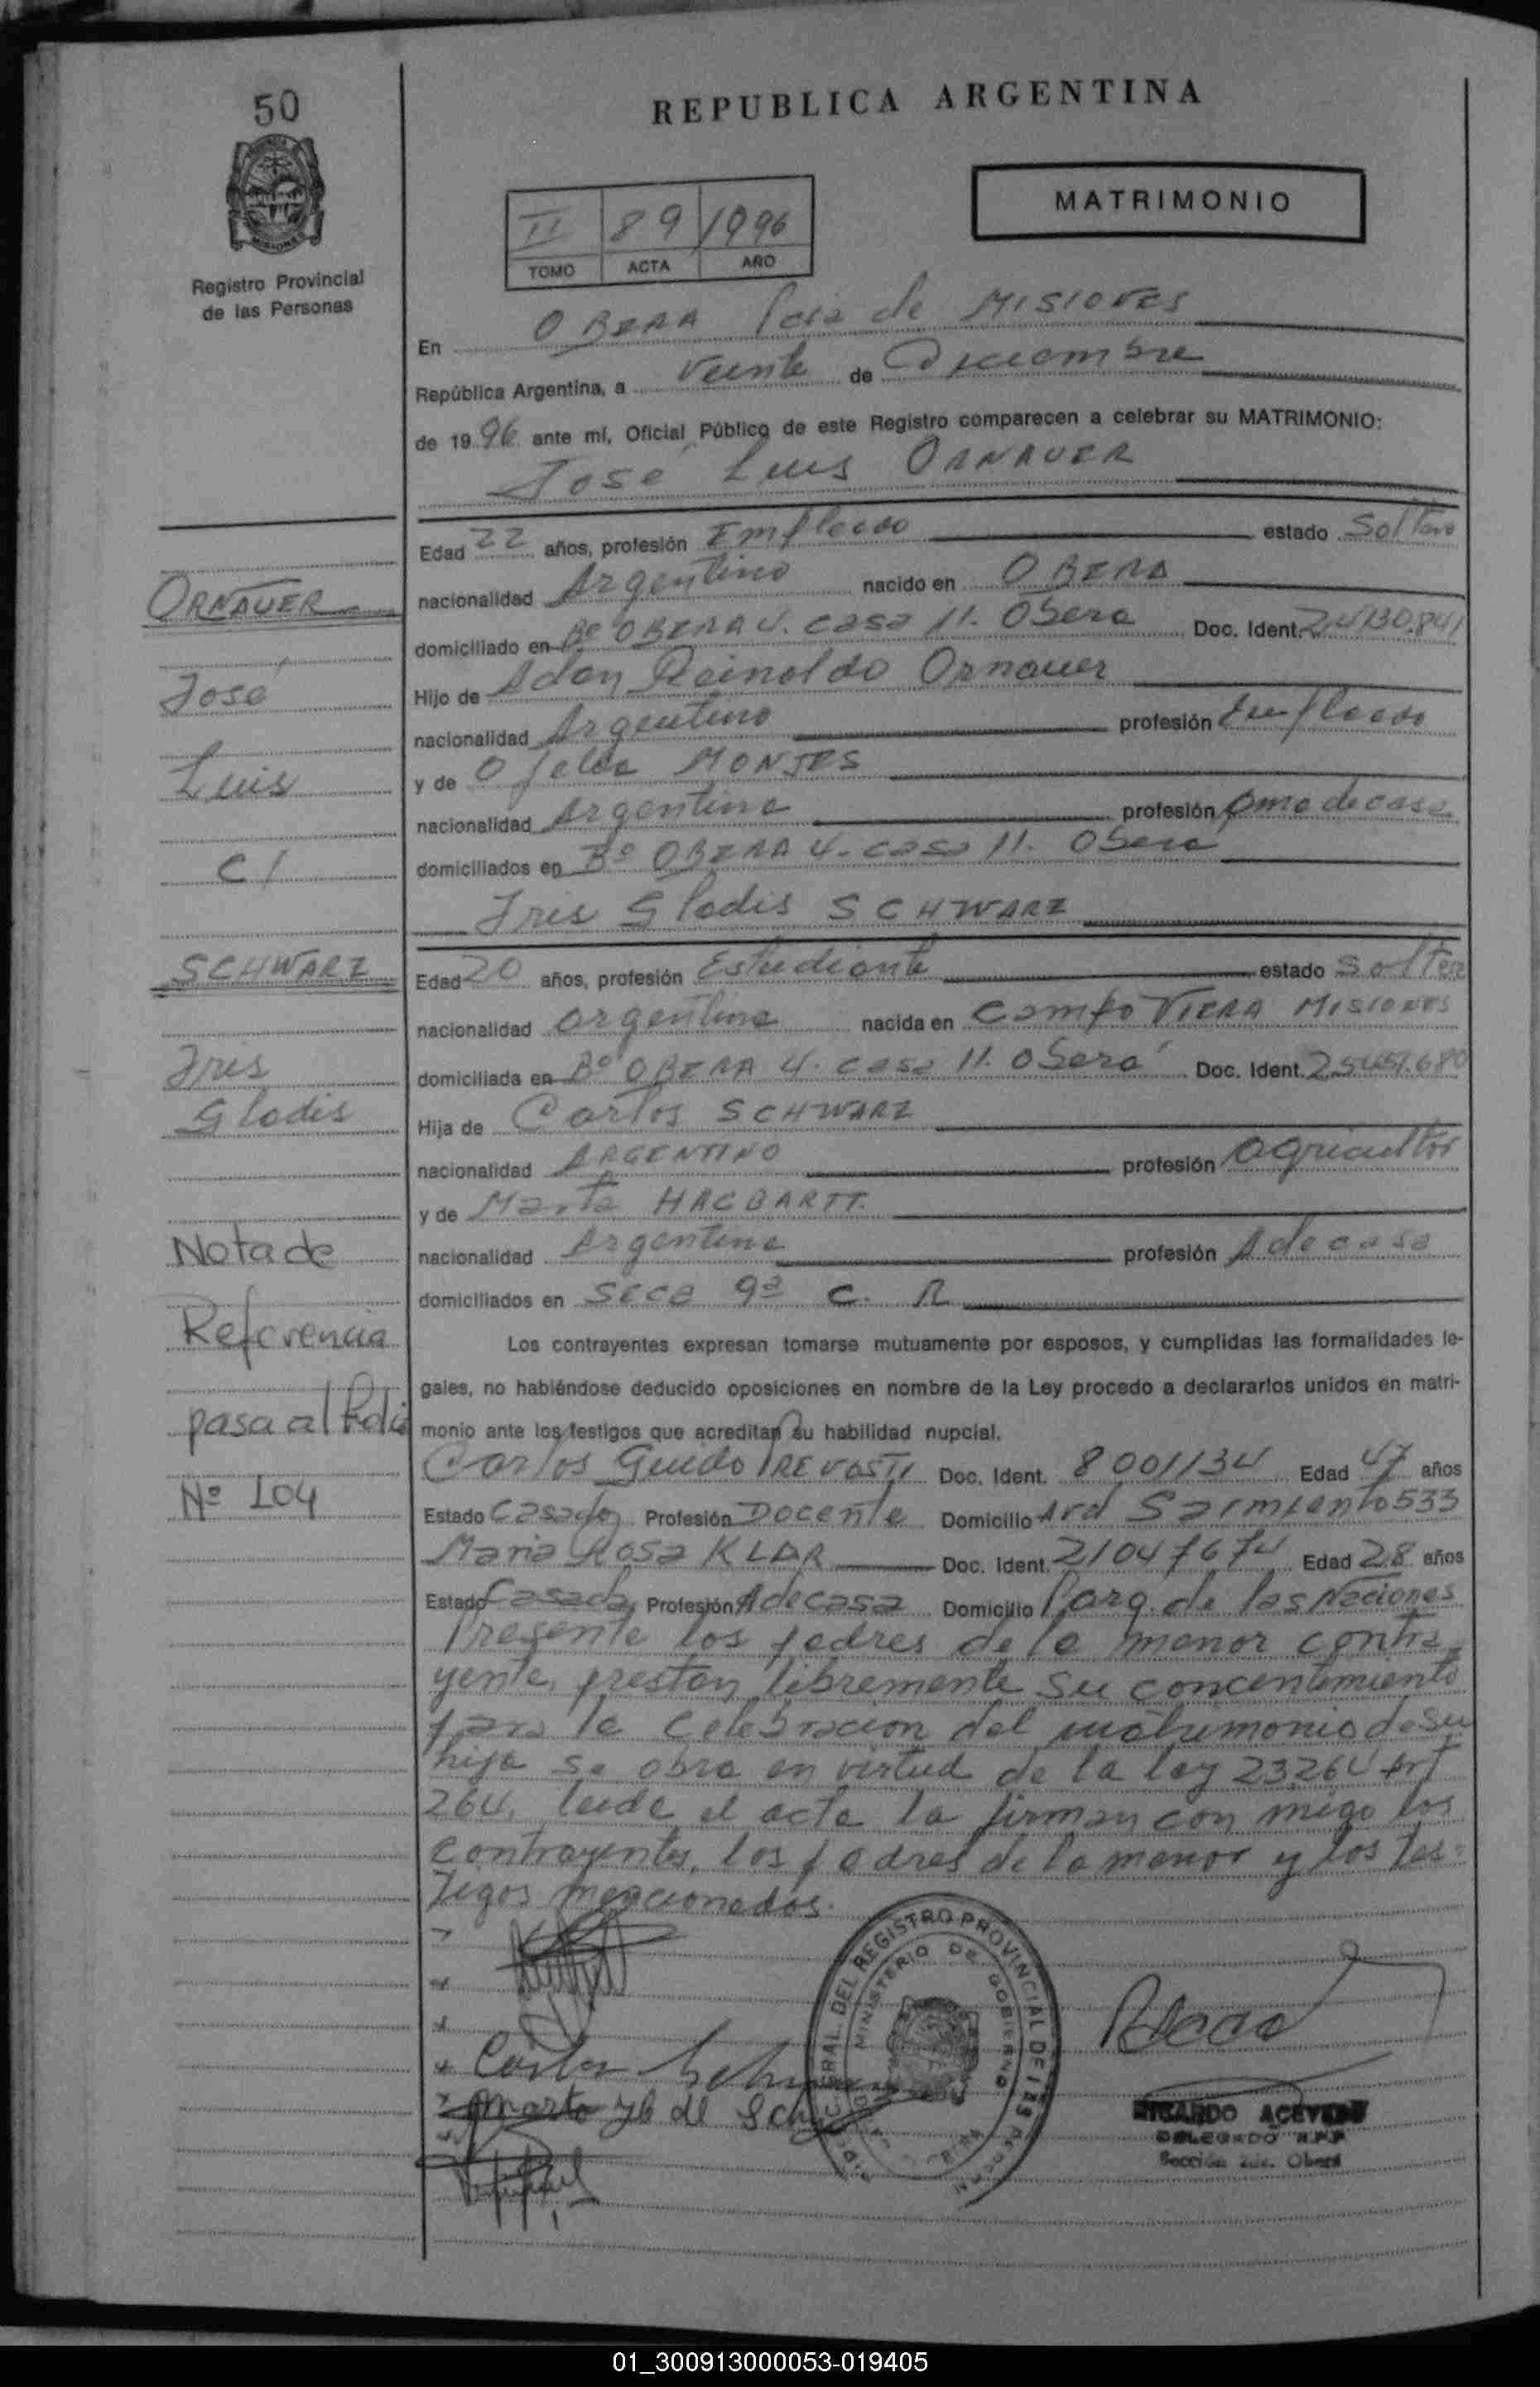 50
REPUBLICA ARGENTINA
MATRIMONIO
II 89 1996
TOMO ACTA AÑO
Registro Provincial
de las Personas
En OBERA Pcia de MISIONES
República Argentina, a Veinte de Diciembre
de 1996 ante mí, Oficial Público de este Registro comparecen a celebrar su MATRIMONIO:
José Luis ORNAUER
Edad 22 años, profesión Empleado estado Soltero
nacionalidad Argentino nacido en OBERA
domiciliado en Bº OBERA 4. casa 11. Obera Doc. Ident. 24130.841
Hijo de Adan Reinoldo Ornauer
nacionalidad Argentino profesión Empleado
y de Ofelia MONJES
nacionalidad Argentina profesión Ama de casa
domiciliados en Bº OBERA 4. casa 11. Obera
Iris Gladis SCHWARZ
Edad 20 años, profesión Estudiante estado Soltera
nacionalidad argentina nacida en Campo VIERA MISIONES
domiciliada en Bº OBERA 4. casa 11. Oberá Doc. Ident.
Hija de Carlos SCHWARZ
nacionalidad ARGENTINO profesión agricultor
y de Marta
nacionalidad Argentina profesión A de casa
domiciliados en Secc 9ª C. R
Los contrayentes expresan tomarse mutuamente por esposos, y cumplidas las formalidades le-
gales, no habiéndose deducido oposiciones en nombre de la Ley procedo a declararlos unidos en matri-
monio ante los testigos que acreditan su habilidad nupcial.
Carlos Guido PREVOSTI Doc. Ident. 8001134 Edad 47 años
Estado Casado Profesión Docente Domicilio Avd Sarmiento 533
Maria Rosa KLAR Doc. Ident. 21047674 Edad 28 años
Estado Casada Profesión A de casa Domicilio Parq. de las Naciones
Presente los padres de la menor contra
yente, prestan libremente su concentimiento
para la celebracion del matrimonio de su
hija se obra en virtud de la ley 23264 Art
264. leida el acta la firman con migo los
contrayentes, los padres de la menor y los tes=
tigos mencionados.
ORNAUER
José
Luis
c/
SCHWARZ
Iris
Gladis
Nota de
Referencia
pasa al Folio
Nº 104
Carlos
Marta de
DEL REGISTRO PROVINCIAL DE LAS
MINISTERIO DE GOBIERNO
RICARDO ACEVEDO
DELEGADO R.P.P
Sección Obera
01_300913000053-019405